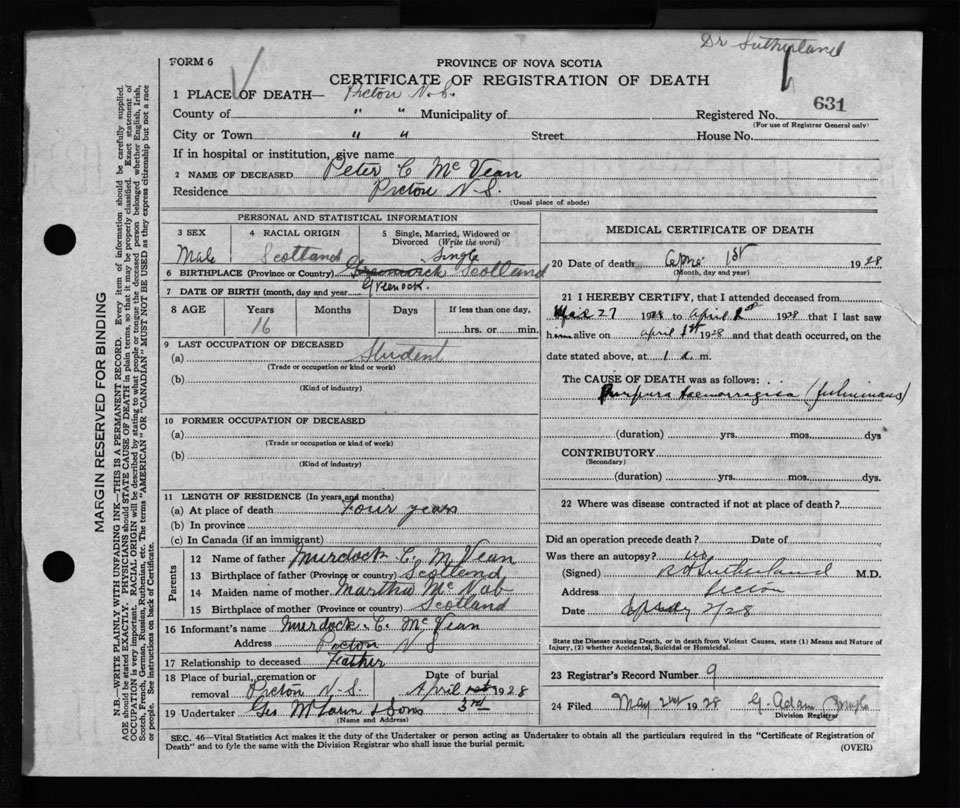 Dr Sutherland
FORM 6
PROVINCE OF NOVA SCOTIA
CERTIFICATE OF REGISTRATION OF DEATH
631
1 PLACE OF DEATH— Picton N.S.
County of " " Municipality of Registered No.
(For use of Registrar General only)
City or Town " " Street House No.
If in hospital or institution, give name
2 NAME OF DECEASED Peter C McVean
Residence Picton N.S.
(Usual place of abode)
PERSONAL AND STATISTICAL INFORMATION
3 SEX Male
4 RACIAL ORIGIN Scotland
5 Single, Married, Widowed or Divorced (Write the word) Single
6 BIRTHPLACE (Province or Country) Scotland
Greenock.
7 DATE OF BIRTH (month, day and year)
8 AGE Years Months Days If less than one day,
16 hrs. or min.
9 LAST OCCUPATION OF DECEASED
(a) Student
(Trade or occupation or kind or work)
(b)
(Kind of industry)
10 FORMER OCCUPATION OF DECEASED
(a)
(Trade or occupation or kind of work)
(b)
(Kind of industry)
11 LENGTH OF RESIDENCE (In years and months)
(a) At place of death Four years
(b) In province
(c) In Canada (if an immigrant)
Parents
12 Name of father Murdock C. McVean
13 Birthplace of father (Province or country) Scotland
14 Maiden name of mother Martha McNab
15 Birthplace of mother (Province or country) Scotland
16 Informant's name Murdock. C. McVean
Address Picton N S
17 Relationship to deceased Father
18 Place of burial, cremation or removal Picton N-S. Date of burial April 3rd 1928
19 Undertaker Geo & Sons
(Name and Address)
MEDICAL CERTIFICATE OF DEATH
20 Date of death 1st 1928
(Month, day and year)
21 I HEREBY CERTIFY, that I attended deceased from
27 1928 to april 1928 that I last saw
him alive on april 1st 1928 and that death occurred, on the
date stated above, at 1 a. m.
The CAUSE OF DEATH was as follows:
Purpura haemorragica (fulminans)
(duration) yrs. mos. dys
CONTRIBUTORY
(Secondary)
(duration) yrs. mos. dys.
22 Where was disease contracted if not at place of death?
Did an operation precede death? Date of
Was there an autopsy? no
(Signed) Sutherland M.D.
Address Picton
Date 2/28
State the Disease causing Death, or in death from Violent Causes, state (1) Means and Nature of Injury, (2) whether Accidental, Suicidal or Homicidal.
23 Registrar's Record Number 9
24 Filed May 2nd 1928 G. Adam
Division Registrar
SEC. 46—Vital Statistics Act makes it the duty of the Undertaker or person acting as Undertaker to obtain all the particulars required in the "Certificate of Registration of
Death" and to fyle the same with the Division Registrar who shall issue the burial permit.
(OVER)
MARGIN RESERVED FOR BINDING
N.B.—WRITE PLAINLY WITH UNFADING INK—THIS IS A PERMANENT RECORD. Every item of information should be carefully supplied.
AGE should be stated EXACTLY. PHYSICIANS should STATE CAUSE OF DEATH in plain terms, so that it may be properly classified. Exact statement of
OCCUPATION is very important. RACIAL ORIGIN will be described by stating to what people or tongue the deceased person belonged whether English, Irish,
Scotch, French, German, Russian, Ruthenian, etc. The terms "AMERICAN" OR "CANADIAN" MUST NOT BE USED as they express citizenship but not a race
or people. See instructions on back of Certificate.